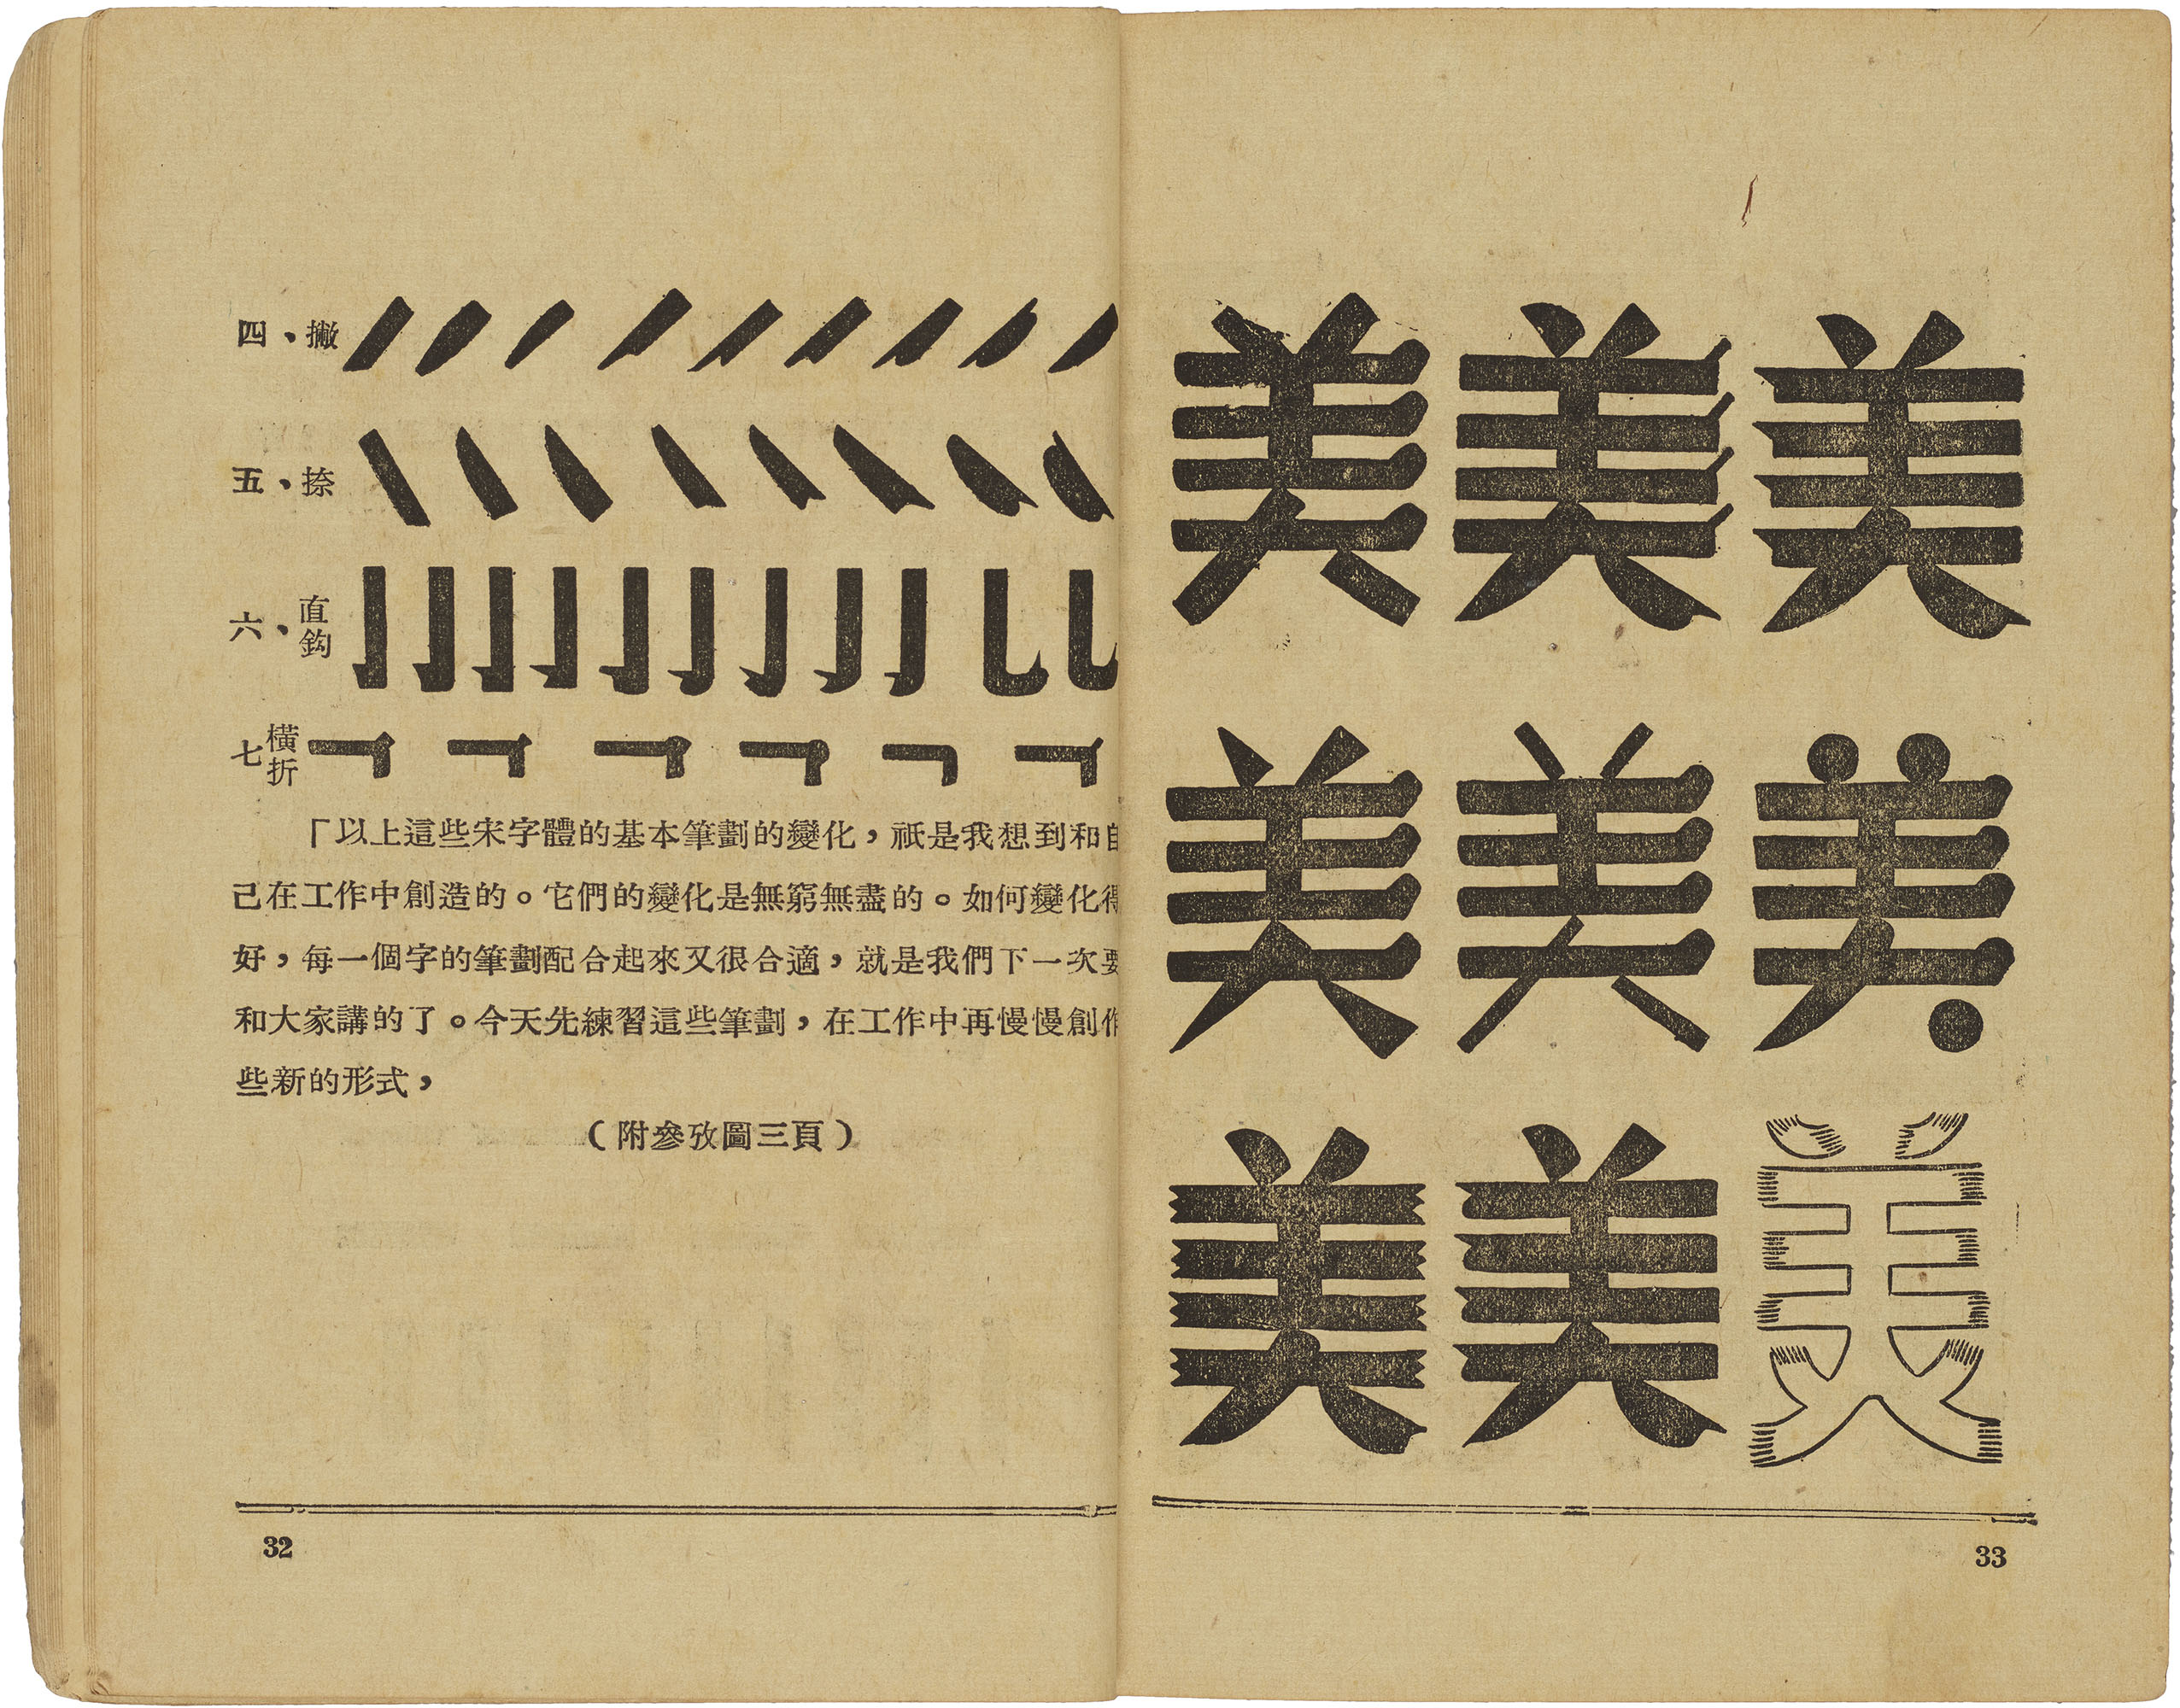 四、撇
五、捺
六、直鈎
七 橫折
「以上這些宋字體的基本筆劃的變化，祇是我想到和自
己在工作中創造的。它們的變化是無窮無盡的。如何變化得
好，每一個字的筆劃配合起來又很合適，就是我們下一次要
和大家講的了。今天先練習這些筆劃，在工作中再慢慢創作
些新的形式，
（附參攷圖三頁）
32
美美美
美美美
美美美
33